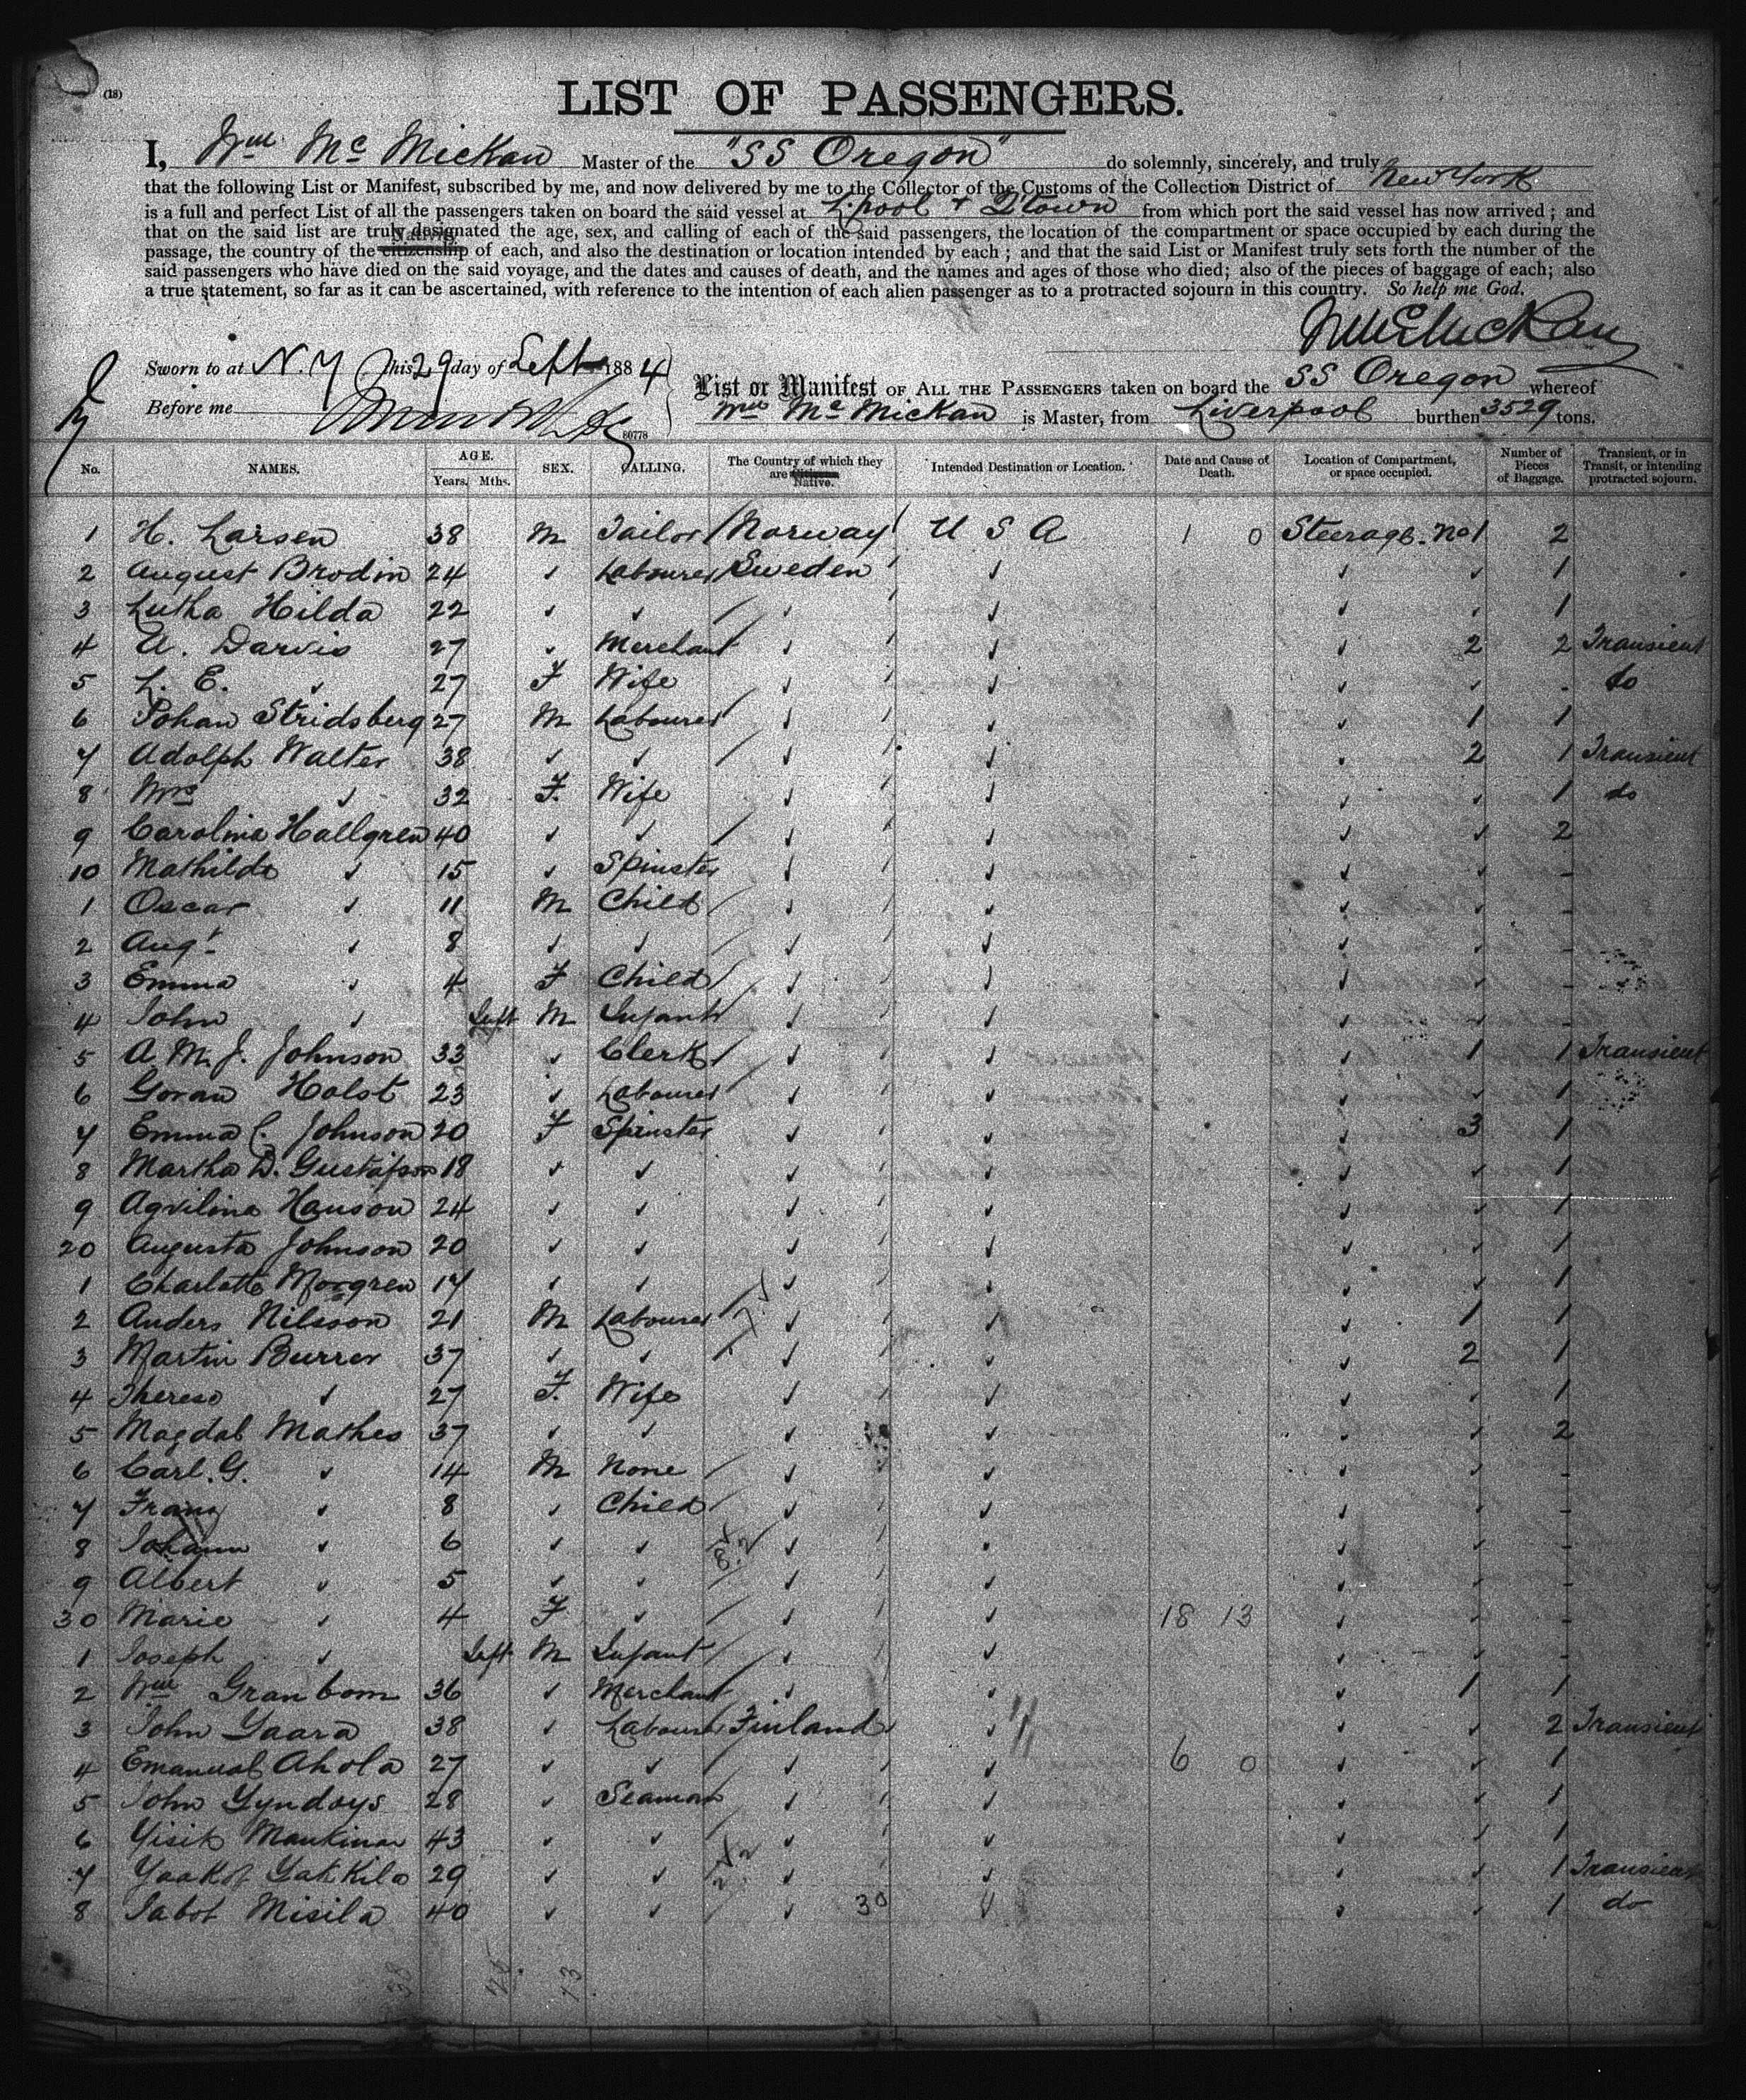 (18)
LIST OF PASSENGERS.
I, Wm Mc Mickan Master of the "SS Oregon" do solemnly, sincerely, and truly
that the following List or Manifest, subscribed by me, and now delivered by me to the Collector of the Customs of the Collection District of New York
is a full and perfect List of all the passengers taken on board the said vessel at L'pool & Q'town from which port the said vessel has now arrived; and
that on the said list are truly designated the age, sex, and calling of each of the said passengers, the location of the compartment or space occupied by each during the
passage, the country of the citizenship Nativity of each, and also the destination or location intended by each; and that the said List or Manifest truly sets forth the number of the
said passengers who have died on the said voyage, and the dates and causes of death, and the names and ages of those who died; also of the pieces of baggage of each; also
a true statement, so far as it can be ascertained, with reference to the intention of each alien passenger as to a protracted sojourn in this country. So help me God.
Wm McMickan
Sworn to at N.Y. this 29 day of Sept 1884
List or Manifest OF ALL THE PASSENGERS taken on board the SS Oregon whereof
Before me
Wm Mc Mickan is Master, from Liverpool burthen 3529 tons.
80778
No. NAMES. AGE. Years. Mths. SEX. CALLING. The Country of which they are Citizens Native. Intended Destination or Location. Date and Cause of Death. Location of Compartment, or space occupied. Number of Pieces of Baggage. Transient, or in Transit, or intending protracted sojourn.
1 H. Larsen 38 M Tailor Norway U S A 1 0 Steerage. No 1 2
2 August Brodin 24 ✓ Labourer Sweden ✓ ✓ ✓ 1
3 Lutha Hilda 22 ✓ ✓ ✓ ✓ ✓ ✓ 1
4 A. Darvis 27 ✓ Merchant ✓ ✓ ✓ 2 2 Transient
5 L. E. ✓ 27 F Wife ✓ ✓ ✓ ✓ - do
6 Johan Stridsberg 27 M Labourer ✓ ✓ ✓ 1 1
7 Adolph Walter 38 ✓ ✓ ✓ ✓ ✓ 2 1 Transient
8 Mrs ✓ 32 F. Wife ✓ ✓ ✓ ✓ 1 do
9 Carolina Hallgren 40 ✓ ✓ ✓ ✓ ✓ ✓ 2
10 Mathilda ✓ 15 ✓ Spinster ✓ ✓ ✓ ✓ -
1 Oscar ✓ 11 M Child ✓ ✓ ✓ ✓ -
2 Augt ✓ 8 ✓ ✓ ✓ ✓ ✓ ✓ -
3 Emma ✓ 4 F Child ✓ ✓ ✓ ✓ -
4 John ✓ Inft M Infant ✓ ✓ ✓ ✓ -
5 A M. J. Johnson 33 ✓ Clerk ✓ ✓ ✓ 1 1 Transient
6 Goran Holst 23 ✓ Labourer ✓ ✓ ✓ ✓ 1
7 Emma C. Johnson 20 F Spinster ✓ ✓ ✓ 3 1
8 Martha D. Gustafson 18 ✓ ✓ ✓ ✓ ✓ ✓ 1
9 Aqvilina Hanson 24 ✓ ✓ ✓ ✓ ✓ ✓ 1
20 Augusta Johnson 20 ✓ ✓ ✓ ✓ ✓ ✓ 1
1 Charlotte Morgren 17 ✓ ✓ ✓ ✓ ✓ ✓ 1
2 Anders Nilsson 21 M Labourer ✓ ✓ ✓ 1 1
3 Martin Burrer 37 ✓ ✓ ✓ ✓ ✓ 2 1
4 Therese ✓ 27 F. Wife ✓ ✓ ✓ ✓ 1
5 Magdal Mathes 37 ✓ ✓ ✓ ✓ ✓ ✓ 2
6 Carl. G. ✓ 14 M None ✓ ✓ ✓ ✓ -
7 Franz ✓ 8 ✓ Child ✓ ✓ ✓ ✓ -
8 Johann ✓ 6 ✓ ✓ ✓ ✓ ✓ ✓ -
9 Albert ✓ 5 ✓ ✓ ✓ ✓ ✓ ✓ -
30 Marie ✓ 4 F ✓ ✓ ✓ 18 13 ✓ ✓ -
1 Joseph ✓ Inft M Infant ✓ ✓ ✓ ✓ -
2 Wm Granbom 36 ✓ Merchant ✓ ✓ ✓ 1 1
3 John Yaara 38 ✓ Labourer Finland ✓ ✓ ✓ 2 Transient
4 Emanuel Ahola 27 ✓ ✓ ✓ ✓ 6 0 ✓ ✓ 1
5 John Lyndoys 28 ✓ Seaman ✓ ✓ ✓ ✓ 1
6 Yisik Mankinan 43 ✓ ✓ ✓ ✓ ✓ ✓ 1
7 Yaakob Yakkila 29 ✓ ✓ ✓ ✓ ✓ ✓ 1 Transient
8 Jabot Misila 40 ✓ ✓ ✓ 30 ✓ ✓ ✓ 1 do
38 25 13